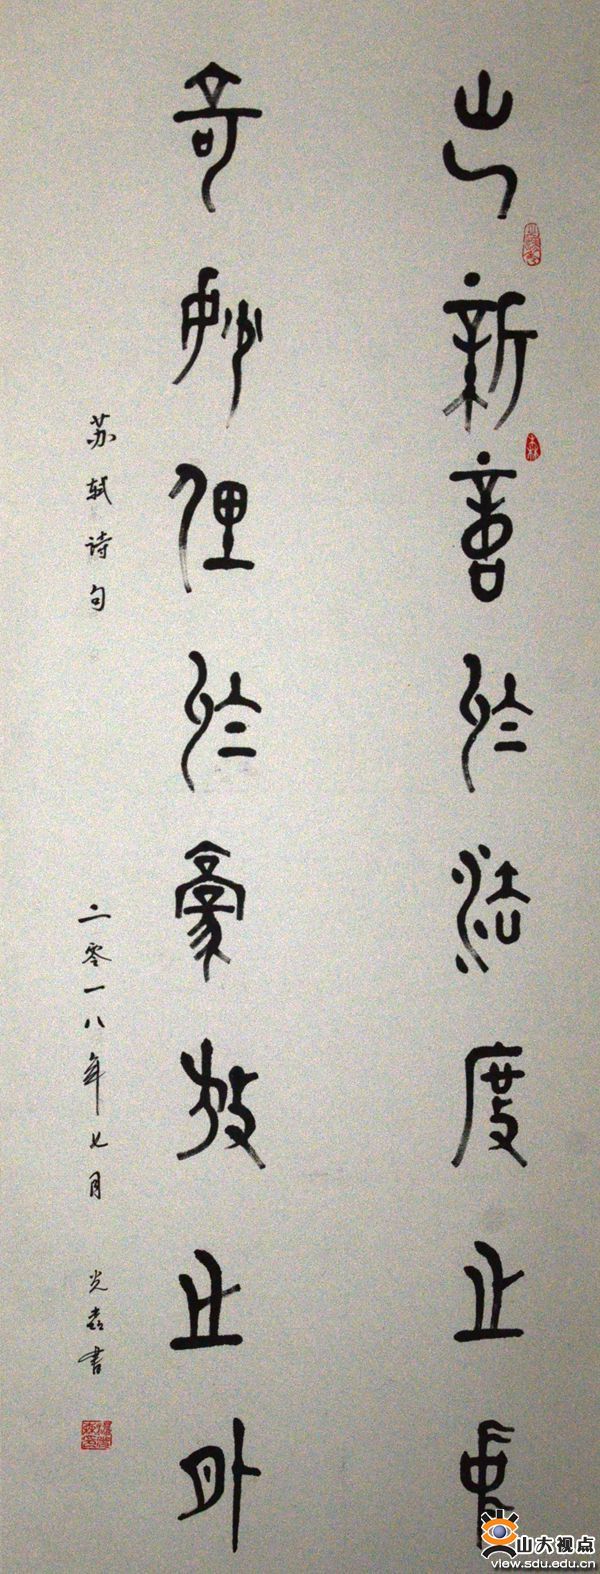 出新意於法度之中
奇妙俚於豪放之外
苏轼诗句
二零一八年七月 光 书
山大视点
view.sdu.edu.cn